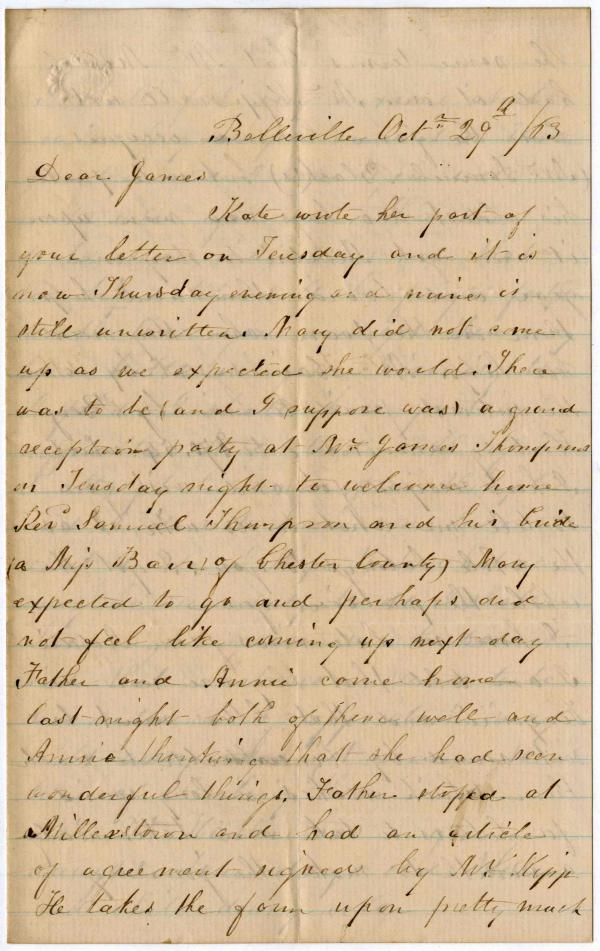 Belleville Octr 29th /63
Dear James
Kate wrote her part of
your letter on Teusday and it is
now Thursday evening and mine is
still unwritten. Mary did not come
up as we expected she would. There
was to be (and I suppose was) a grand
reception party at Mr James Thompsons
on Teusday night to welcome home
Revd Samuel Thompson and his bride
(a Miss Barr) of Chester County) Mary
expected to go and perhaps did
not feel like coming up next day
Father and Annie came home
last night both of them well and
Annie thinking that she had seen
wonderful things. Father stoped at
Millerstown and had an article
of agreement signed by Mr Kipp
He takes the farm upon pretty much